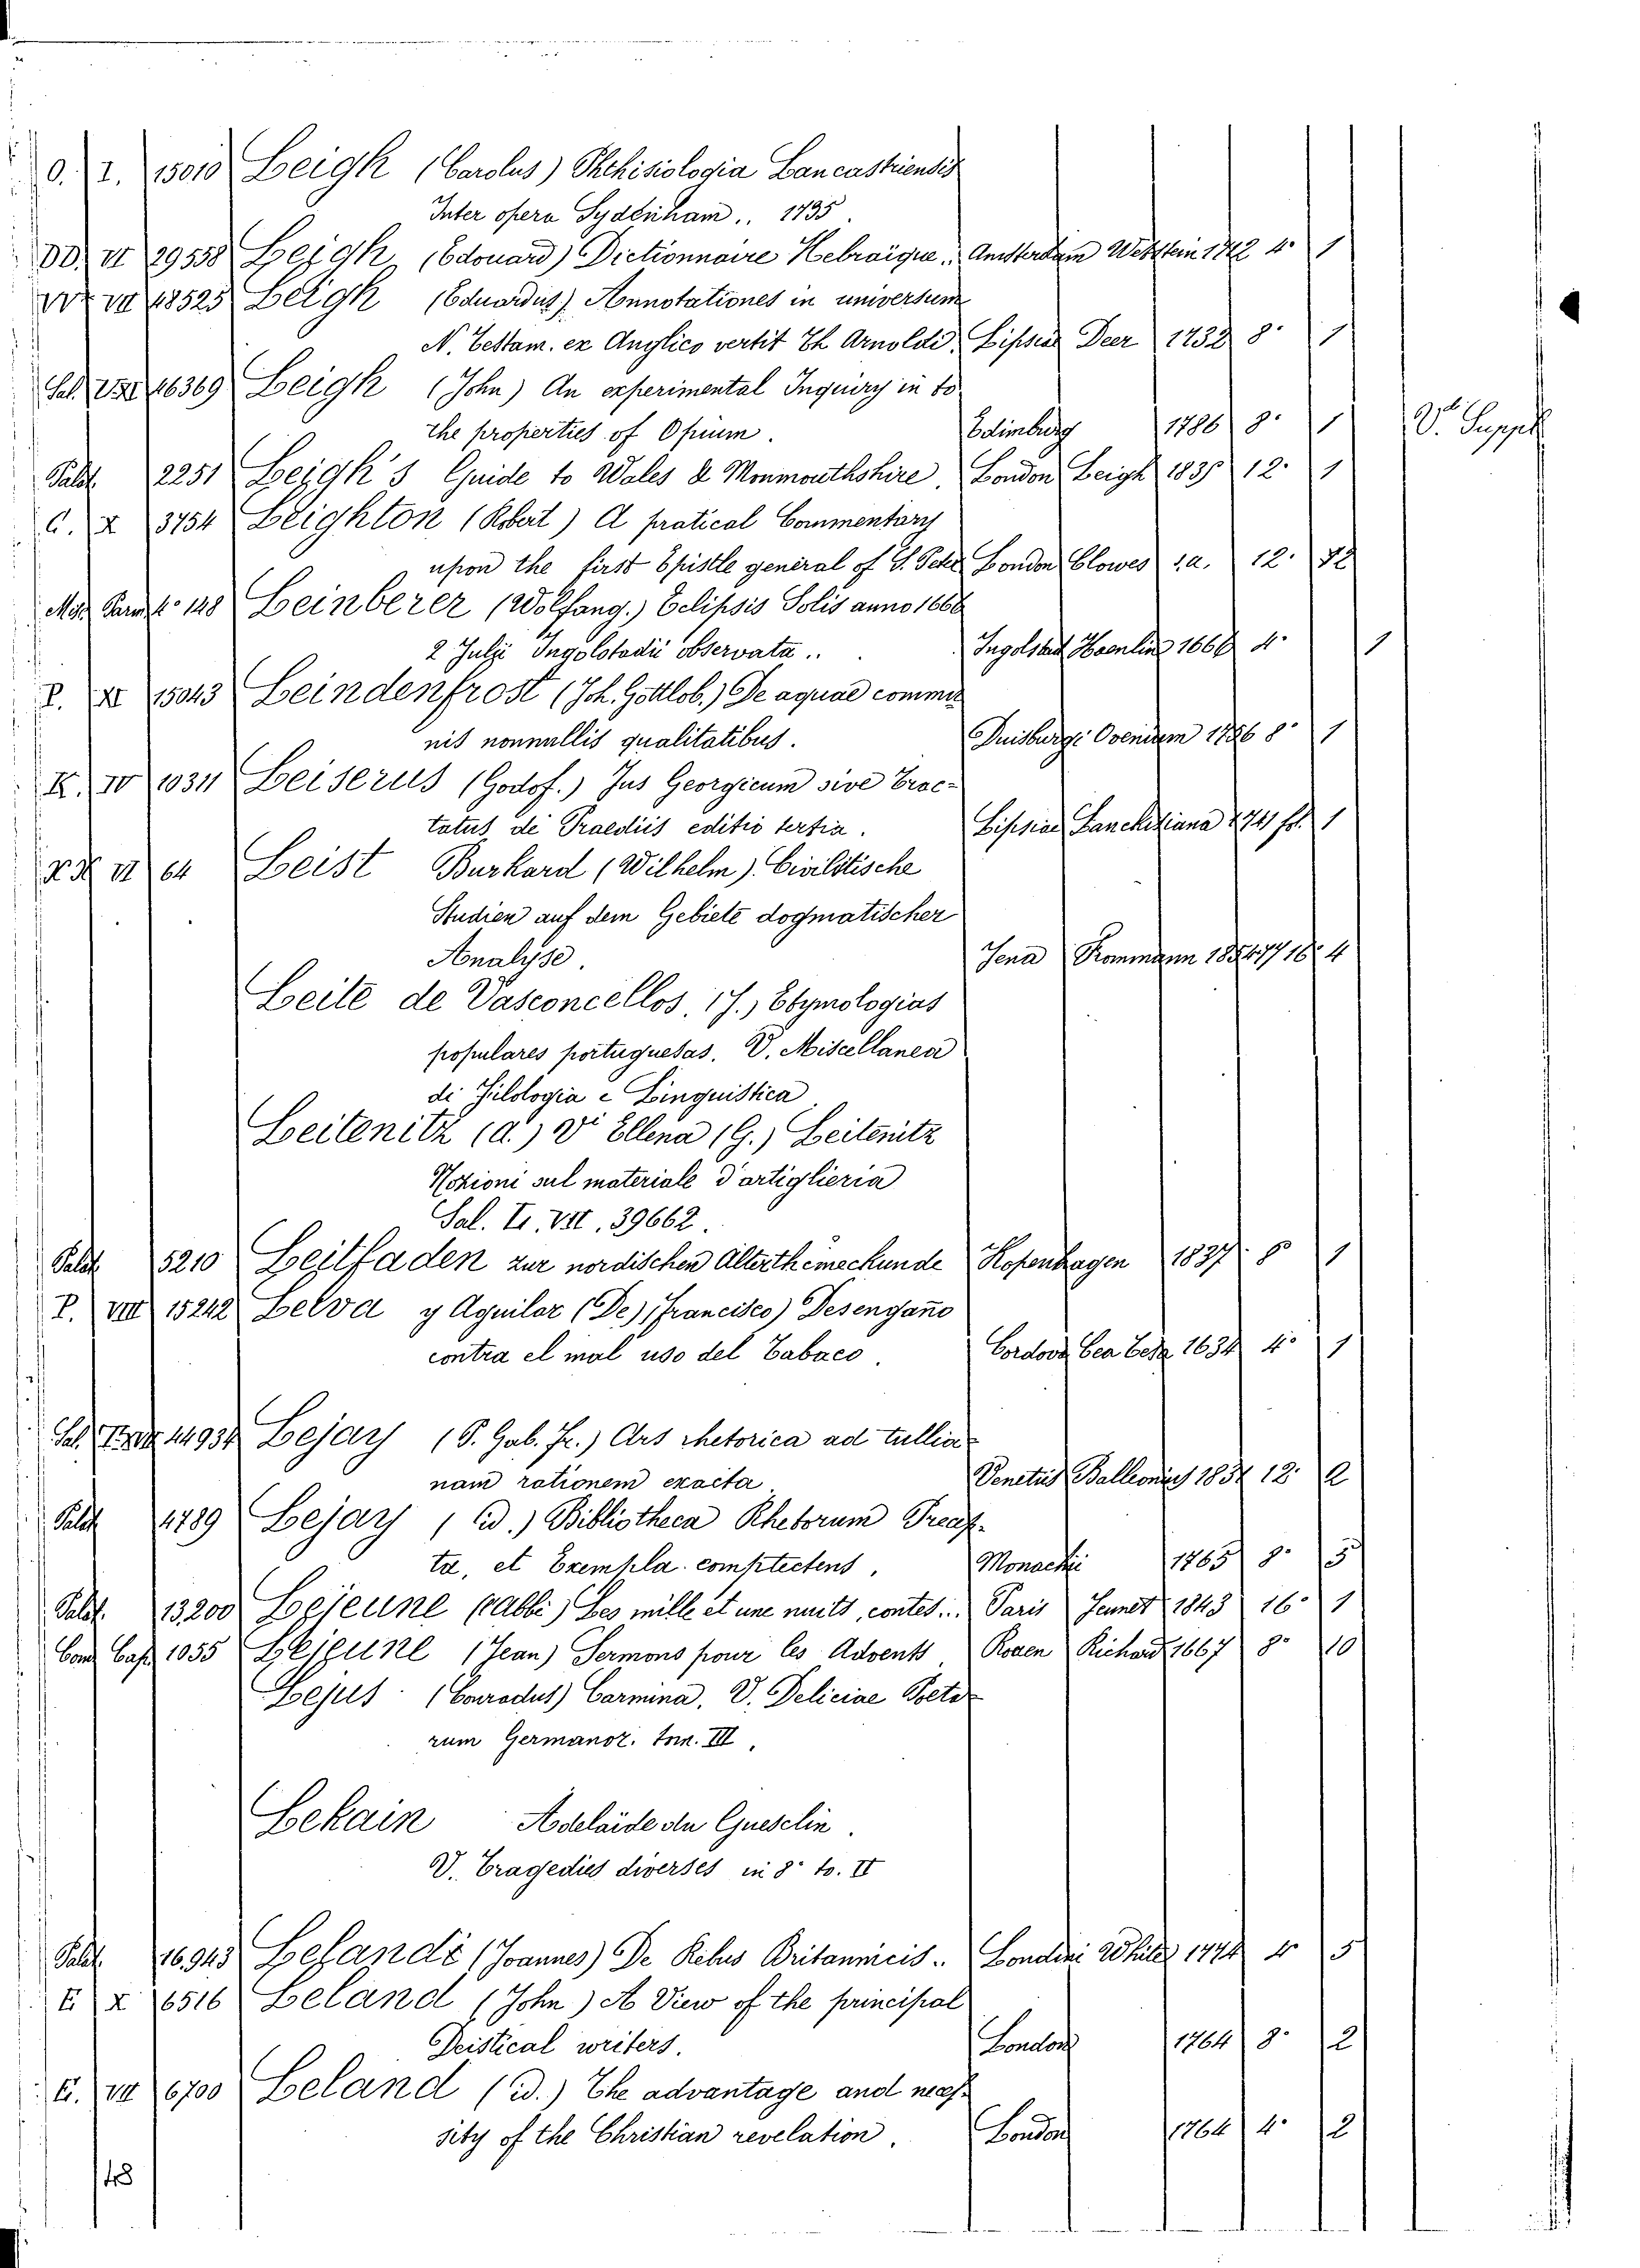 O. I. 15010 Leigh (Carolus) Phthisiologia Lancastriensis
Inter opera Sydenham.. 1735.
DD. VI 29558 Leigh (Edouard) Dictionnaire Hebraique.. Amsterdam Wetstein 1712 4° 1
VII 48525 Leigh (Eduardus) Annotationes in universum
N. Testam. ex Anglico vertit Th Arnoldi. Lipsiae Deer 1732 8° 1
Sal. 46369 Leigh (John) An experimental Inquiry in to
the properties of Opium. Edimburg 1786 8° 1 V. Suppl
Palat. 2251 Leigh's Guide to Wales & Monmouthshire. London Leigh 1835 12° 1
C. X 3754 Leighton (Robert) A pratical Commentary
upon the first Epistle general of S. Peter London Clowes s.a. 12°
Misc. Parm. 4° 148 Leinberer (Wolfang.) Eclipsis Solis anno 1666
2 Julji Ingolstadii observata.. Ingolstad Haenlin 1666 4° 1
P. XI 15043 Leindenfrost (Joh. Gottlob.) De aquae commu
nis nonnullis qualitatibus. Duisburgi Ovenium 1756 8° 1
K. IV 10311 Leiserus (Godof.) Jus Georgicum sive Trac-
tatus de Praediis editio tertia. Lipsiae Lanckisiana 1741 fol. 1
VI 64 Leist Burkard (Wilhelm). Civilstische
Studien auf dem Gebiete dogmatischer
Analyse. Jena Frommann 1854/77 16° 4
Leite de Vasconcellos, (J.) Etymologias
populares portuguesas. V. Miscellanea
di Filologia e Linguistica
Leitenitz (d.) Vi Ellena (G.) Leitenitz
Nozioni sul materiale d'artiglieria
Sal. Tr. VII. 39662.
Palat. 5210 Leitfaden zur nordischen Alterthumskunde Kopenhagen 1837 8° 1
P. VIII 15242 Leiva y Aguilar (De) (Francisco) Desengaño
contra el mal uso del Tabaco. Cordova Cea Tesa 1634 4° 1
Sal. 44934 Lejay (P. Gab. Fr.) Ars rhetorica ad tullia-
nam rationem exacta. Venetiis Balleonius 12° 2
Palat. 4789 Lejay (id.) Bibliotheca Rhetorum Praecep-
ta, et Exempla complectens, Monachii 1765 8° 5
Palat. 13200 Lejeune (abbé) Les mille et une nuits, contes... Paris Jennet 1843 16° 1
Com. Cap. 1055 Lejeune (Jean) Sermons pour les Advents, Rouen Richard 1667 8° 10
Lejus (Conradus) Carmina. V. Deliciae Poeta
rum Germanor. tom. III.
Lekain Adelaïde du Guesclin.
V. Tragedies diverses in 8° to. II
Palat. 16.943 Lelandi (Joannes) De Rebus Britannicis.. Londini White 1774 4° 5
E X 6516 Leland (John) A View of the principal
Deistical writers. London 1764 8° 2
E. VII 6700 Leland (id.) The advantage and neces-
sity of the Christian revelation. London 1764 4° 2
48